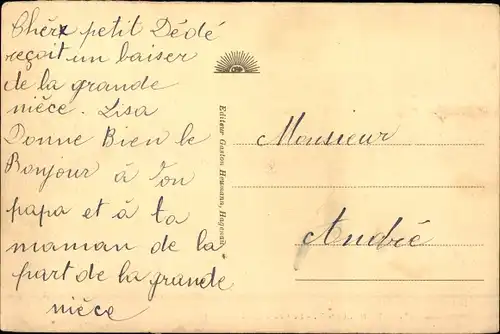 Chèrx petit Dédé
reçoit un baiser
de la grande
nièce. Lisa
Donne Bien le
Bonjour à ton
papa et à ta
maman de la
part de la grande
nièce
Editeur Gaston Heumann, Hagenau
Monsieur
André